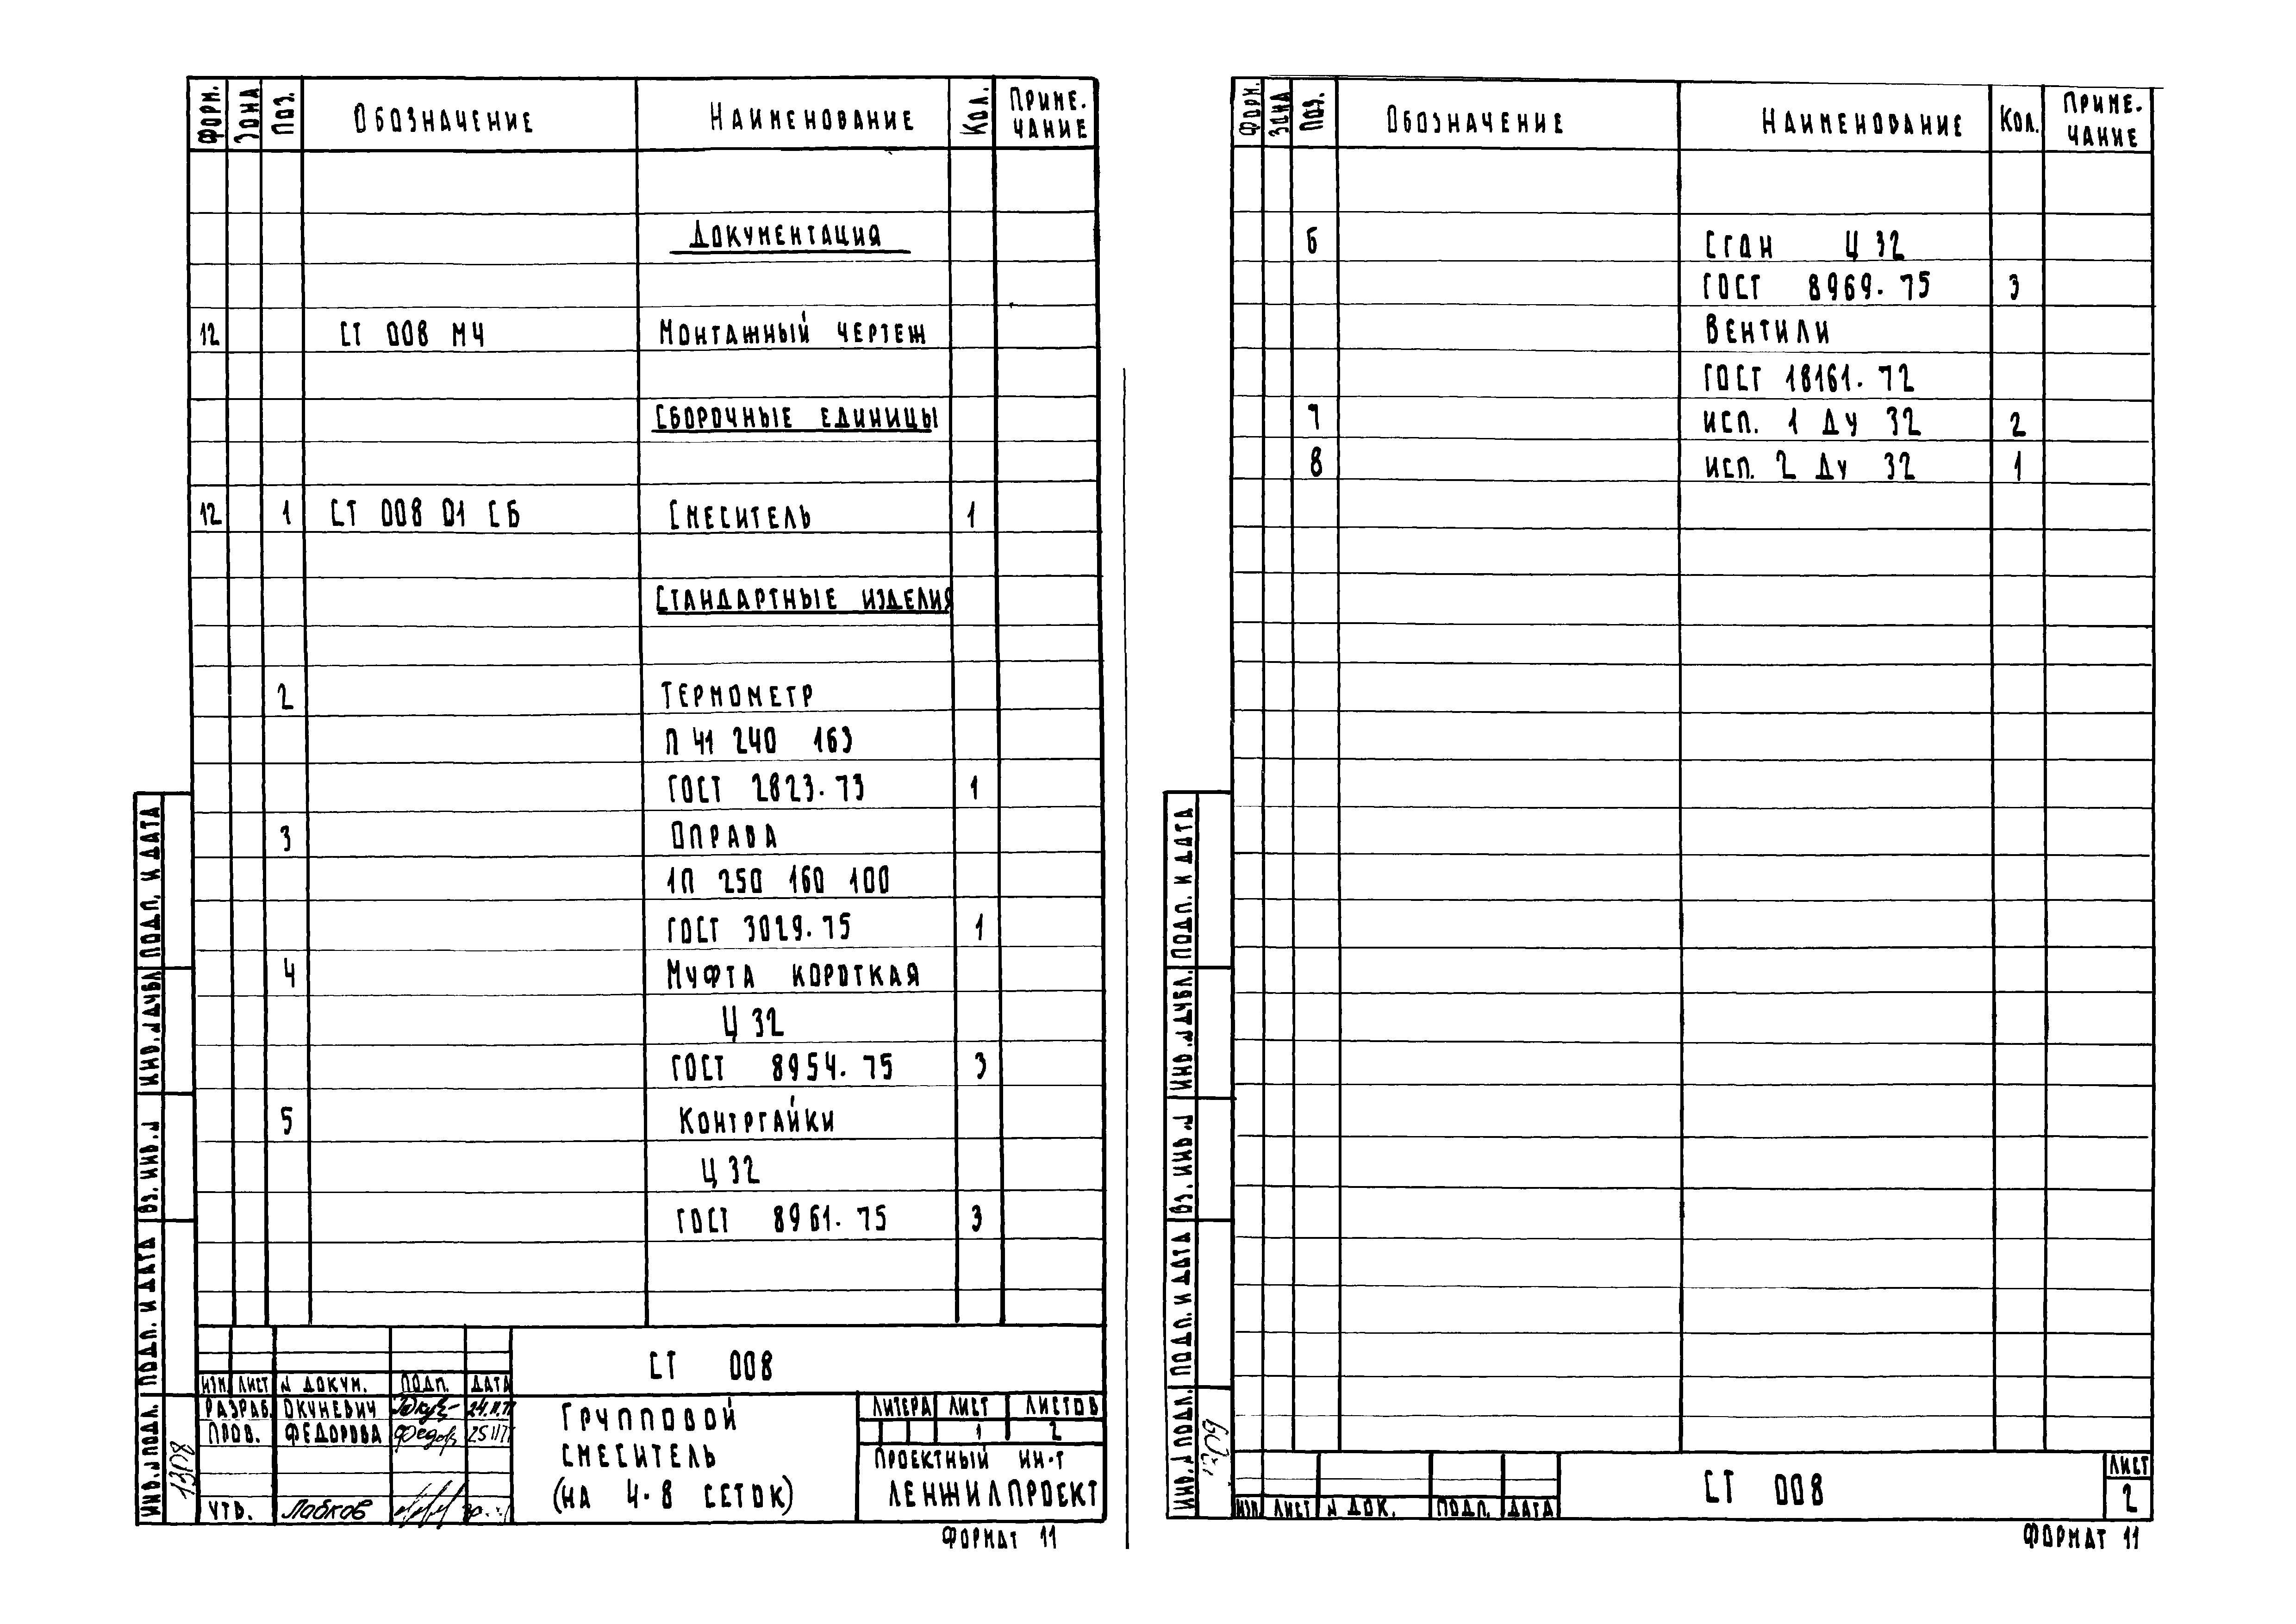 Форм. Зона Поз. Обозначение Наименование Кол. Приме-чание
Документация
12 СТ 008 МЧ Монтажный чертеж
Сборочные единицы
12 1 СТ 008 01 СБ Смеситель 1
Стандартные изделия
2 Термометр
П 41 240 163
ГОСТ 2823-73 1
3 Оправа
1П 250 160 100
ГОСТ 3029-75 1
4 Муфта короткая
Ц 32
ГОСТ 8954-75 3
5 Контргайки
Ц 32
ГОСТ 8961-75 3
СТ 008
Изм. Лист № докум. Подп. Дата
Разраб. Окуневич 24.11.77
Пров. Федорова 25.11.77
Утв. Лобков
Групповой
смеситель
(на 4-8 сеток)
Литера Лист Листов
1 2
Проектный ин-т
ЛЕНЖИЛПРОЕКТ
Формат 11
Инв.№ подл. Подп. и дата Вз. инв.№ Инв.№ дубл. Подп. и дата
1308
Форм. Зона Поз. Обозначение Наименование Кол. Приме-чание
6 Сгон Ц 32
ГОСТ 8969-75 3
Вентили
ГОСТ 18161-72
7 исп. 1 Ду 32 2
8 исп. 2 Ду 32 1
Изм. Лист № док. Подп. Дата
СТ 008
Лист
2
Формат 11
Инв.№ подл. Подп. и дата Вз. инв.№ Инв.№ дубл. Подп. и дата